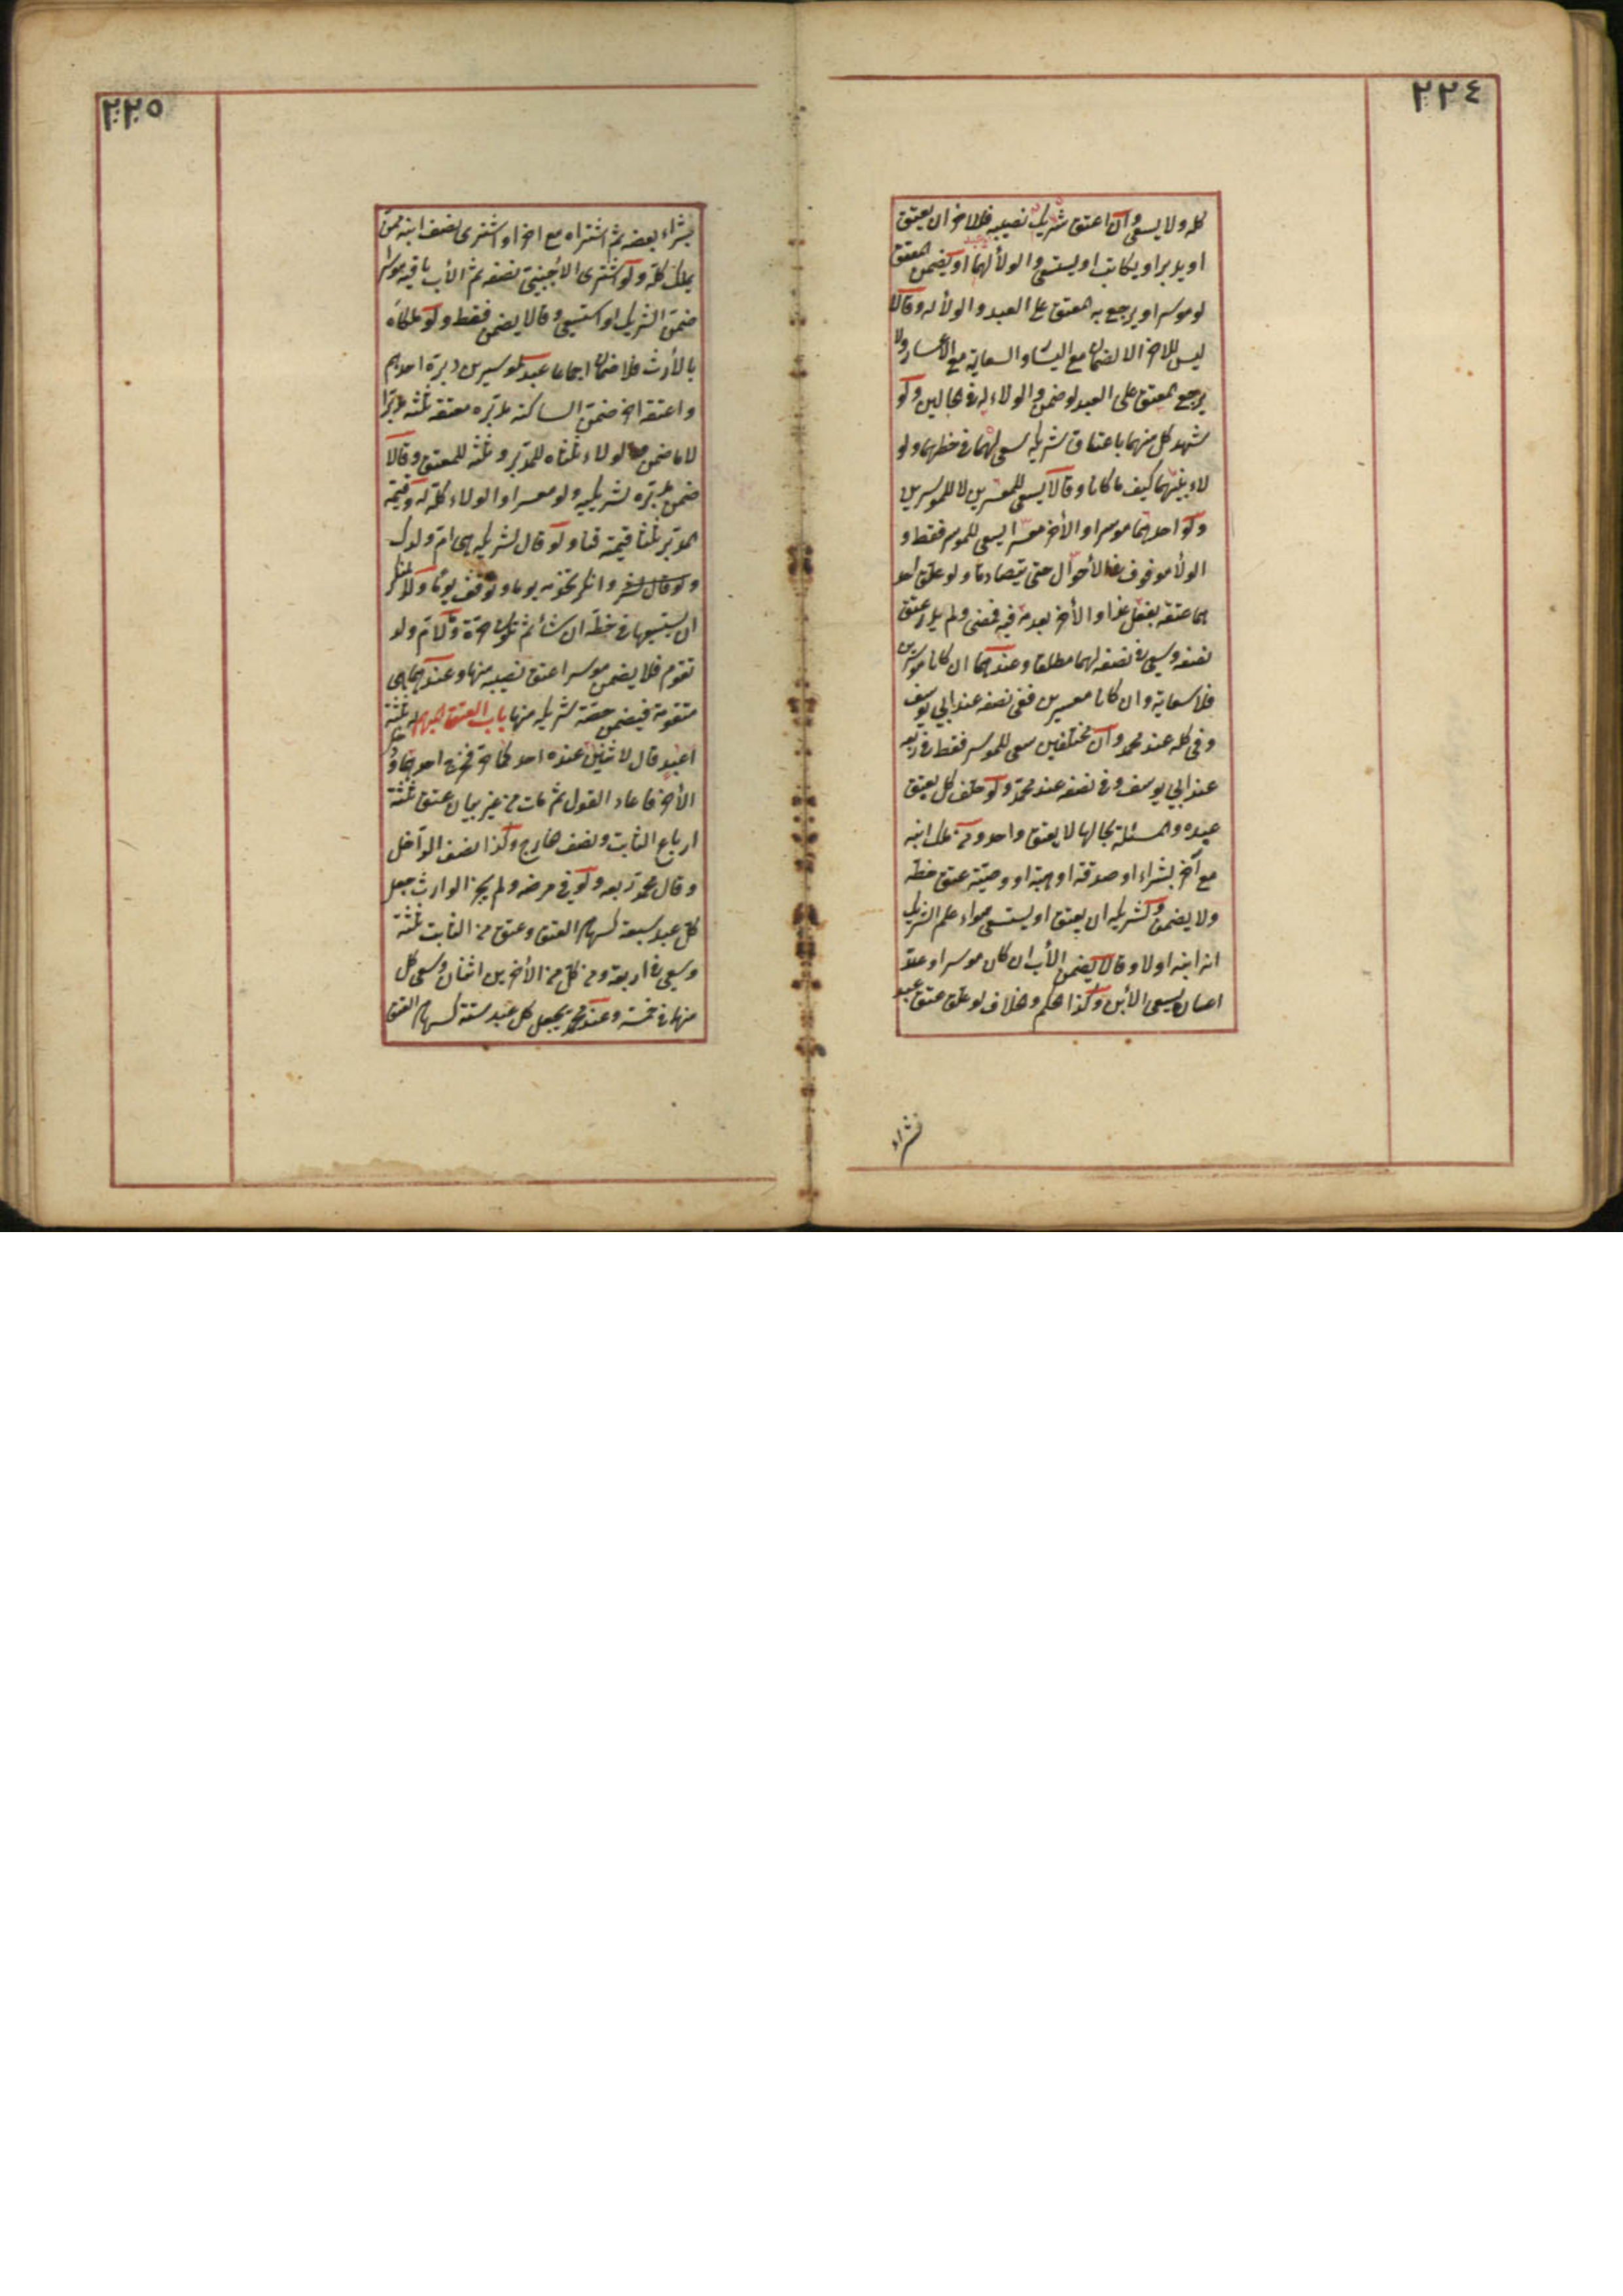 ٢٢٤
كله ولا يسعى وان اعتق شريك نصيبه فللآخر ان يعتق
او يدبر او يكاتب او يستسعى والولاء لهما او يضمن المعتق
لو موسرا ويرجع به المعتق على العبد والولاء له وقالا
ليس للآخر الا الضمان مع اليسار والسعاية مع الاعسار ولا
يرجع المعتق على العبد لو ضمن والولاء له في الحالين ولو
شهد كل منهما باعتاق شريكه سعى لهما في حظهما ولو
لاء بينهما كيف ما كانا وقالا يسعى للمعسرين لا للموسرين
ولو احدهما موسرا والأخر معسرا يسعى للموسر فقط و
الولاء موقوف في الأحوال حتى يتصادقا ولو علق احد
هما عتقه بفعل غدا والأخر بعدمه فيه فمضى ولم يدر عتق
نصفه وسعى في نصفه لهما مطلقا وعندهما ان كانا موسرين
فلا سعاية وان كانا معسرين ففي نصفه عند ابي يوسف
وفي كله عند محمد وان مختلفين سعى للموسر فقط في ربعه
عند ابي يوسف وفي نصفه عند محمد ولو حلف كل بعتق
عبده والمسئلة بحالها لا يعتق واحد ومن ملك ابنه
مع آخر بشراء او صدقة او هبة او وصية عتق حظه
ولا يضمن ولشريكه ان يعتق او يستسعى سواء علم الشريك
انه ابنه اولا وقالا يضمن الأب ان كان موسرا وعند
اعساره يسعى الأبن وكذا الحكم والخلاف لو علق عتق عبد
بشراء
٢٢٥
بشراء بعضه ثم اشتراه مع اخر او اشترى نصف ابنه ممن
يملك كله ولو اشترى الأجنبي نصفه ثم الأب باقيه موسرا
ضمن الشريك او استسعى وقالا يضمن فقط ولو ملكاه
بالأرث فلا ضمان اجماعا عبد لموسرين دبره احدهم
واعتقه اخر ضمن الساكت مدبره ومدبره معتقه ثلثه مدبرا
لا ما ضمن والولاء ثلثاه للمدبر وثلثه للمعتق وقالا
ضمن مدبره لشريكيه ولو معسرا والولاء كله له وقيمة
المدبر ثلثا قيمته قنا ولو قال لشريكه هي ام ولدك
وانكر تخدمه يوما وتوقف يوما وقالا للمنكر
ان يستسعيها في حظه ان شاء ثم تكون حرة ولا لام ولد
تقوم فلا يضمن موسرا عتق نصيبه منها وعندهما هي
متقومة فيضمن حصة شريكه منها باب العتق المبهم له ثلثة
اعبد قال لاثنين عنده احدكما حر فخرج احدهما ودخل
الأخر فاعاد القول ثم مات من غير بيان عتق ثلثة
ارباع الثابت ونصف الخارج وكذا نصف الداخل
وقال محمد ربعه ولو في مرضه ولم يجز الوارث جعل
كل عبد سبعة كسهام العتق وعتق من الثابت ثلثة
وسعى في اربعة ومن كل من الأخرين اثنان وسعى كل
منهما في خمسة وعند محمد يجعل كل عبد ستة كسهام العتق